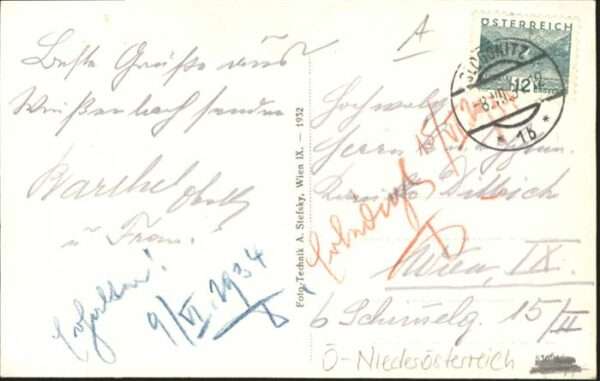 Beste Grüße aus
Weißenbach senden
Barthel
u Frau.
Erhalten!
9/VI. 1934
Foto-Technik A. Stefsky, Wien IX. — 1932
A
ÖSTERREICH
12
GLOGGNITZ
* 1b *
Hochwohl
Herrn u
Dittrich
Wien, IX.
6 Schimelg. 15/II
Ö-Niederösterreich